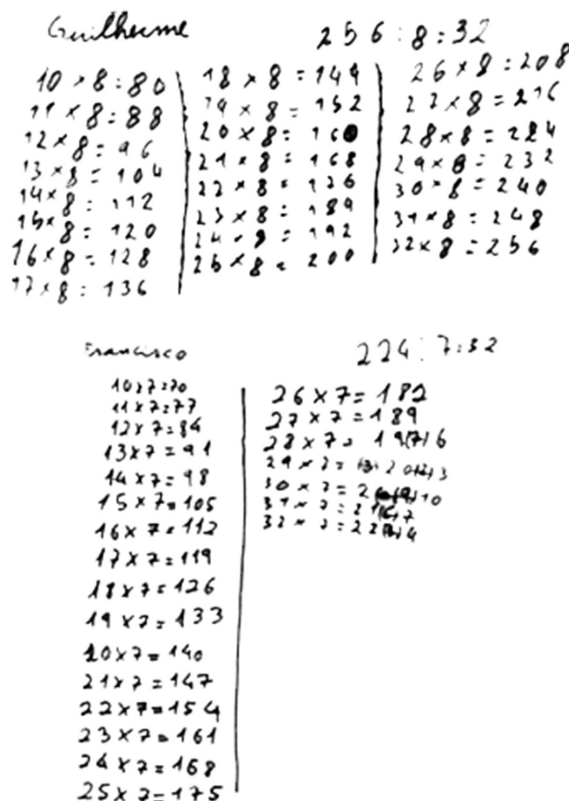 Guilherme
256:8=32
10 × 8 = 80
11 × 8 = 88
12 × 8 = 96
13 × 8 = 104
14 × 8 = 112
15 × 8 = 120
16 × 8 = 128
17 × 8 = 136
18 × 8 = 144
19 × 8 = 152
20 × 8 = 160
21 × 8 = 168
22 × 8 = 176
23 × 8 = 184
24 × 8 = 192
25 × 8 = 200
26 × 8 = 208
27 × 8 = 216
28 × 8 = 224
29 × 8 = 232
30 × 8 = 240
31 × 8 = 248
32 × 8 = 256
Francisco
224:7=32
10 × 7 = 70
11 × 7 = 77
12 × 7 = 84
13 × 7 = 91
14 × 7 = 98
15 × 7 = 105
16 × 7 = 112
17 × 7 = 119
18 × 7 = 126
19 × 7 = 133
20 × 7 = 140
21 × 7 = 147
22 × 7 = 154
23 × 7 = 161
24 × 7 = 168
25 × 7 = 175
26 × 7 = 182
27 × 7 = 189
28 × 7 = 19(7)6
29 × 7 =
30 × 7 =
31 × 7 =
32 × 7 =